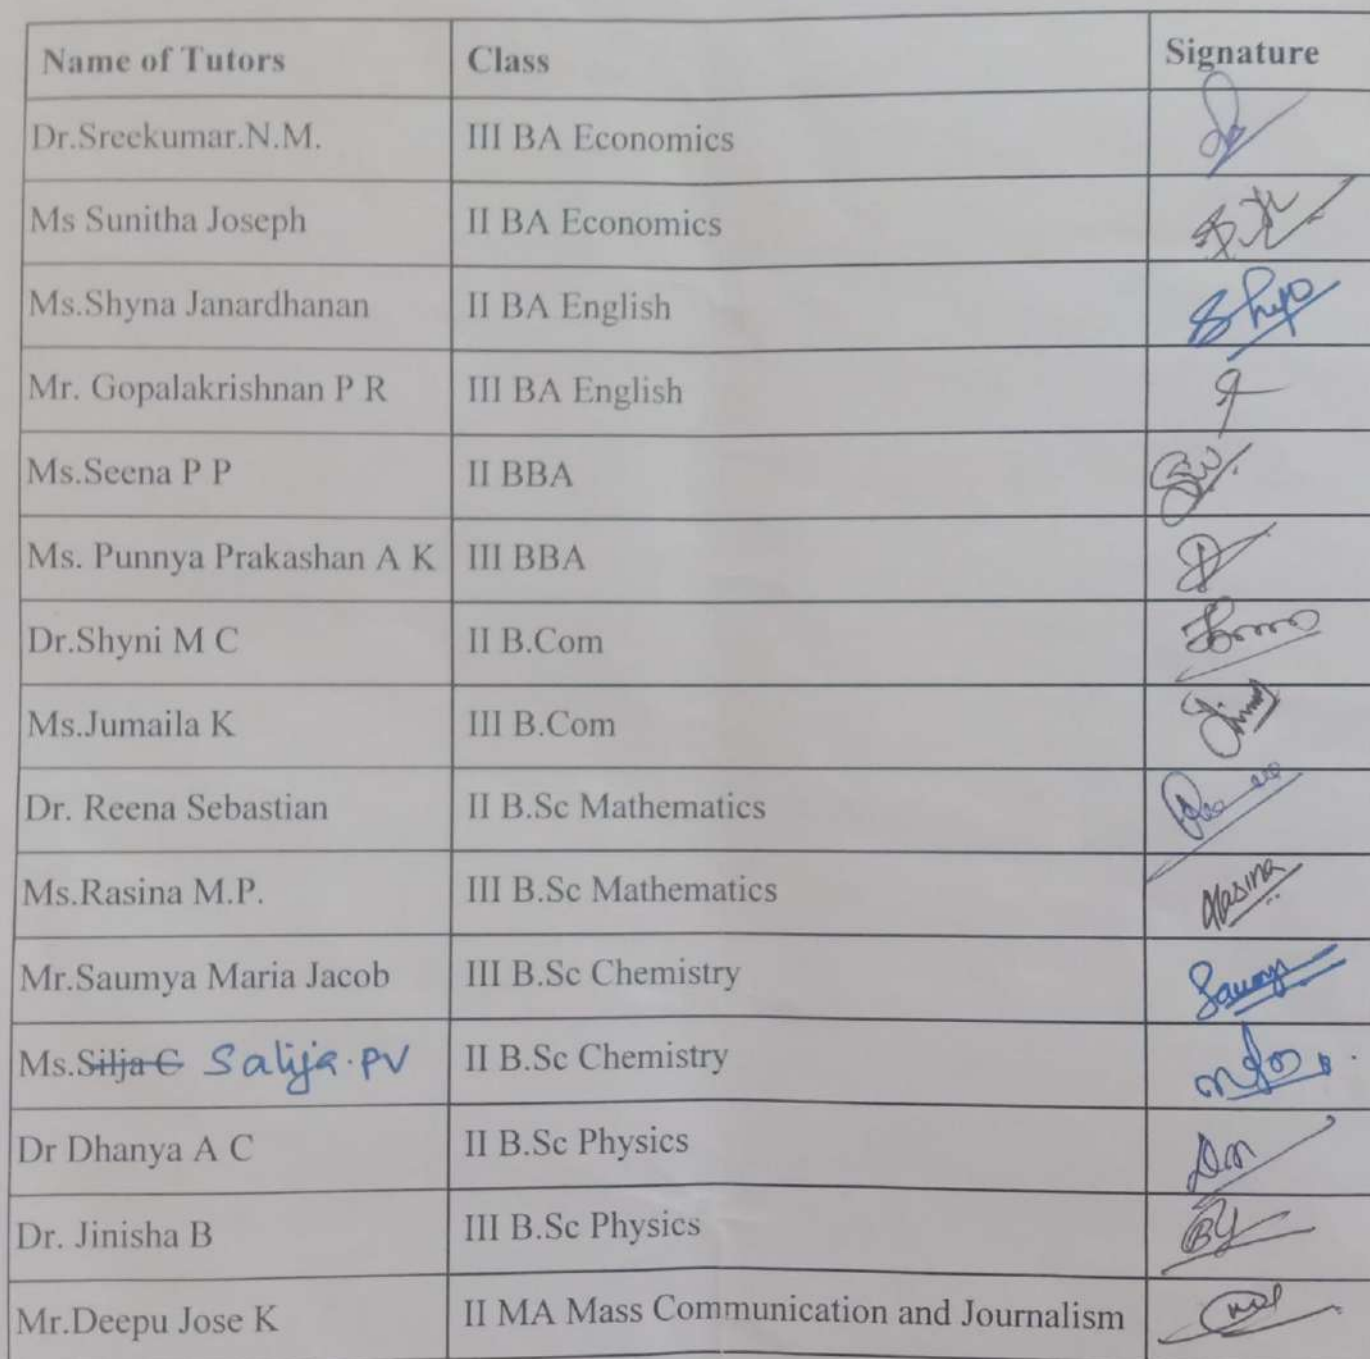 Name of Tutors Class Signature
Dr.Sreekumar.N.M. III BA Economics
Ms Sunitha Joseph II BA Economics
Ms.Shyna Janardhanan II BA English
Mr. Gopalakrishnan P R III BA English
Ms.Seena P P II BBA
Ms. Punnya Prakashan A K III BBA
Dr.Shyni M C II B.Com
Ms.Jumaila K III B.Com
Dr. Reena Sebastian II B.Sc Mathematics
Ms.Rasina M.P. III B.Sc Mathematics Rasina
Mr.Saumya Maria Jacob III B.Sc Chemistry Saumya
Ms.Silja C Salija.PV II B.Sc Chemistry
Dr Dhanya A C II B.Sc Physics
Dr. Jinisha B III B.Sc Physics
Mr.Deepu Jose K II MA Mass Communication and Journalism